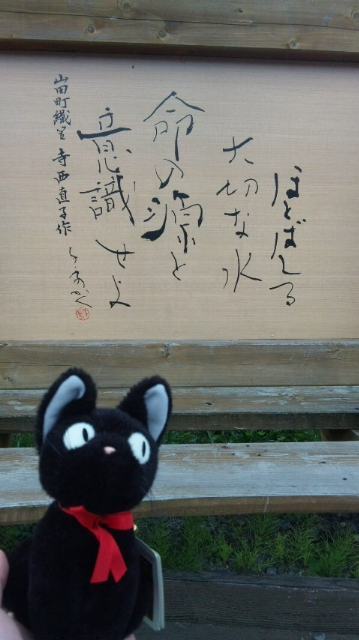 ほとばしる
大切な水
命の源と
意識せよ
山田町織笠 寺西直子作